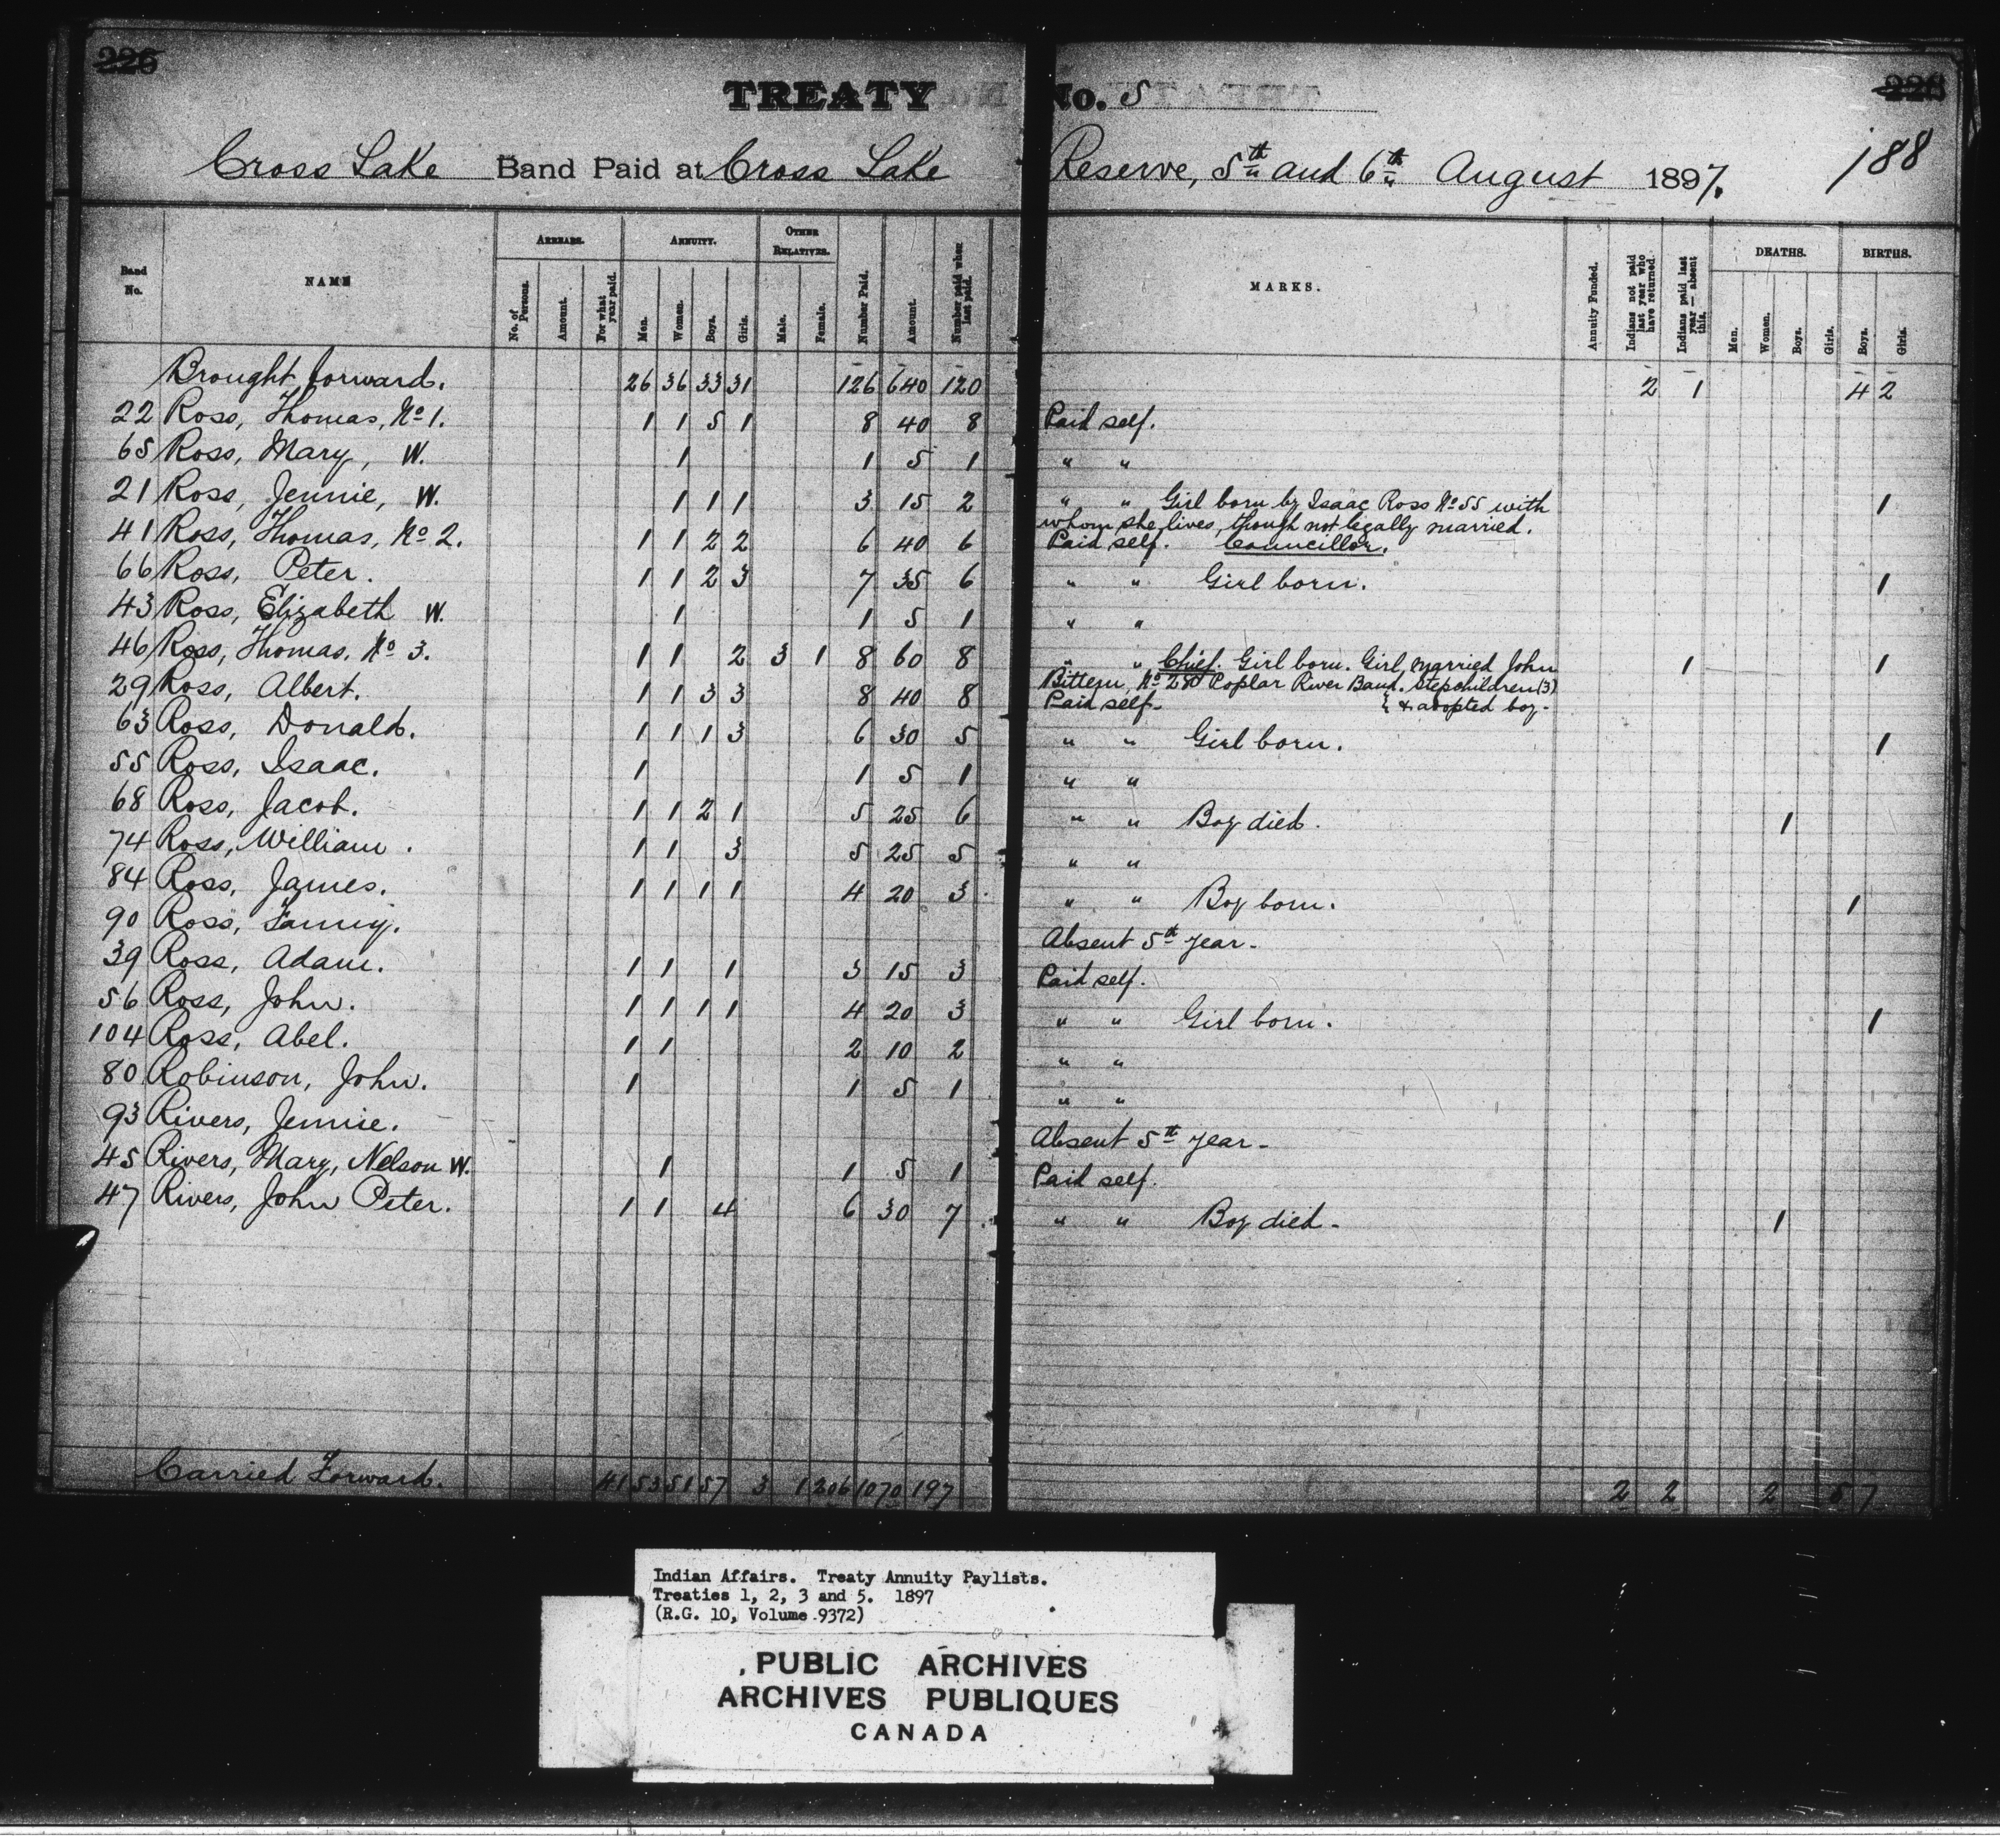 226
TREATY No. 5
226
188
Cross Lake Band Paid at Cross Lake Reserve, 5th and 6th August 1897.
Band No. NAME ARREARS. No. of Persons. Amount. For what year paid. ANNUITY. Men. Women. Boys. Girls. OTHER RELATIVES. Male. Female. Number Paid. Amount. Number paid when last paid. MARKS. Annuity Funded. Indians not paid last year who have returned. Indians paid last year — absent this. DEATHS. Men. Women. Boys. Girls. BIRTHS. Boys. Girls.
Brought forward. 26 36 33 31 126 640 120 2 1 4 2
22 Ross, Thomas, No 1. 1 1 5 1 8 40 8 Paid self.
65 Ross, Mary, W. 1 1 5 1 " "
21 Ross, Jennie, W. 1 1 1 3 15 2 " " Girl born by Isaac Ross No 55 with 1
whom she lives, though not legally married.
41 Ross, Thomas, No 2. 1 1 2 2 6 40 6 Paid self. Councillor.
66 Ross, Peter. 1 1 2 3 7 35 6 " " Girl born. 1
43 Ross, Elizabeth W. 1 1 5 1 " "
46 Ross, Thomas. No 3. 1 1 2 3 1 8 60 8 " " Chief. Girl born. Girl, married John 1 1
Bittern, No 280 Poplar River Band. Stepchildren (3)
29 Ross, Albert. 1 1 3 3 8 40 8 Paid self. & adopted boy.
63 Ross, Donald. 1 1 1 3 6 30 5 " " Girl born. 1
55 Ross, Isaac. 1 1 5 1 " "
68 Ross, Jacob. 1 1 2 1 5 25 6 " " Boy died. 1
74 Ross, William. 1 1 3 5 25 5 " "
84 Ross, James. 1 1 1 1 4 20 3 " " Boy born. 1
90 Ross, Fanny. Absent 5th year.
39 Ross, Adam. 1 1 1 3 15 3 Paid self.
56 Ross, John. 1 1 1 1 4 20 3 " " Girl born. 1
104 Ross, Abel. 1 1 2 10 2 " "
80 Robinson, John. 1 1 5 1 " "
93 Rivers, Jennie. Absent 5th year.
45 Rivers, Mary, Nelson W. 1 1 5 1 Paid self.
47 Rivers, John Peter. 1 1 4 6 30 7 " " Boy died. 1
Carried Forward. 41 53 51 57 3 1 206 1070 197 2 2 2 5 7
Indian Affairs. Treaty Annuity Paylists.
Treaties 1, 2, 3 and 5. 1897
(R.G. 10, Volume 9372)
PUBLIC ARCHIVES
ARCHIVES PUBLIQUES
CANADA